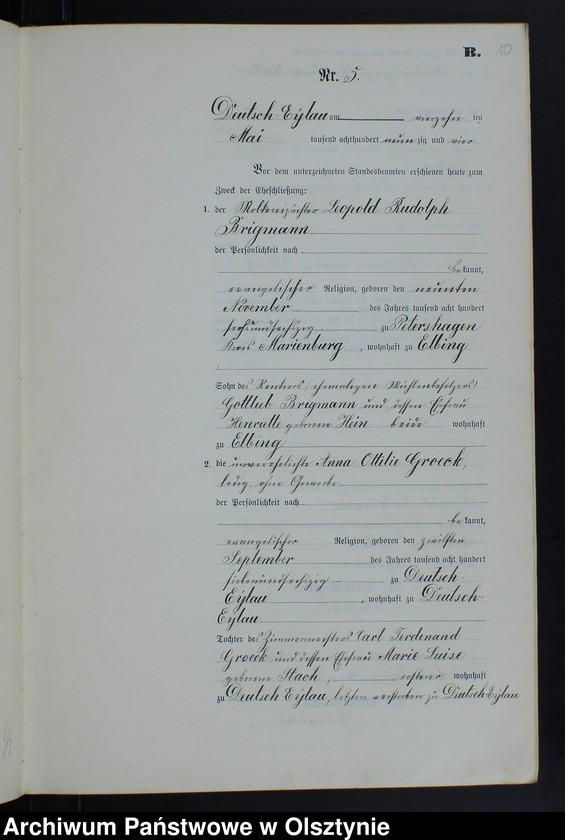 B. 10
Nr. 5.
Deutsch-Eylau am vierzehn ten
Mai tausend achthundert neunzig und vier
Vor dem unterzeichneten Standesbeamten erschienen heute zum
Zweck der Eheschließung:
1. der Molkereipächter Leopold Rudolph
Brigmann
der Persönlichkeit nach
bekannt,
evangelischer Religion, geboren den neunten
November des Jahres tausend acht hundert
sechsundsechzig zu Petershagen
Kreis Marienburg, wohnhaft zu Elbing
Sohn des Rentiers (ehemaligen Mühlenbesitzers)
Gottlieb Brigmann und dessen Ehefrau
Henriette geborene Hein beide wohnhaft
zu Elbing
2. die unverehelichte Anna Ottilie Groeck,
ledig, ohne Gewerbe
der Persönlichkeit nach
bekannt,
evangelischer Religion, geboren den zwölften
September des Jahres tausend acht hundert
siebenundsechzig zu Deutsch-
Eylau, wohnhaft zu Deutsch-
Eylau
Tochter des Zimmermeisters Carl Ferdinand
Groeck und dessen Ehefrau Marie Luise
geborene Stach, ersterer wohnhaft
zu Deutsch Eylau, letztere verstorben zu Deutsch-Eylau
Archiwum Państwowe w Olsztynie